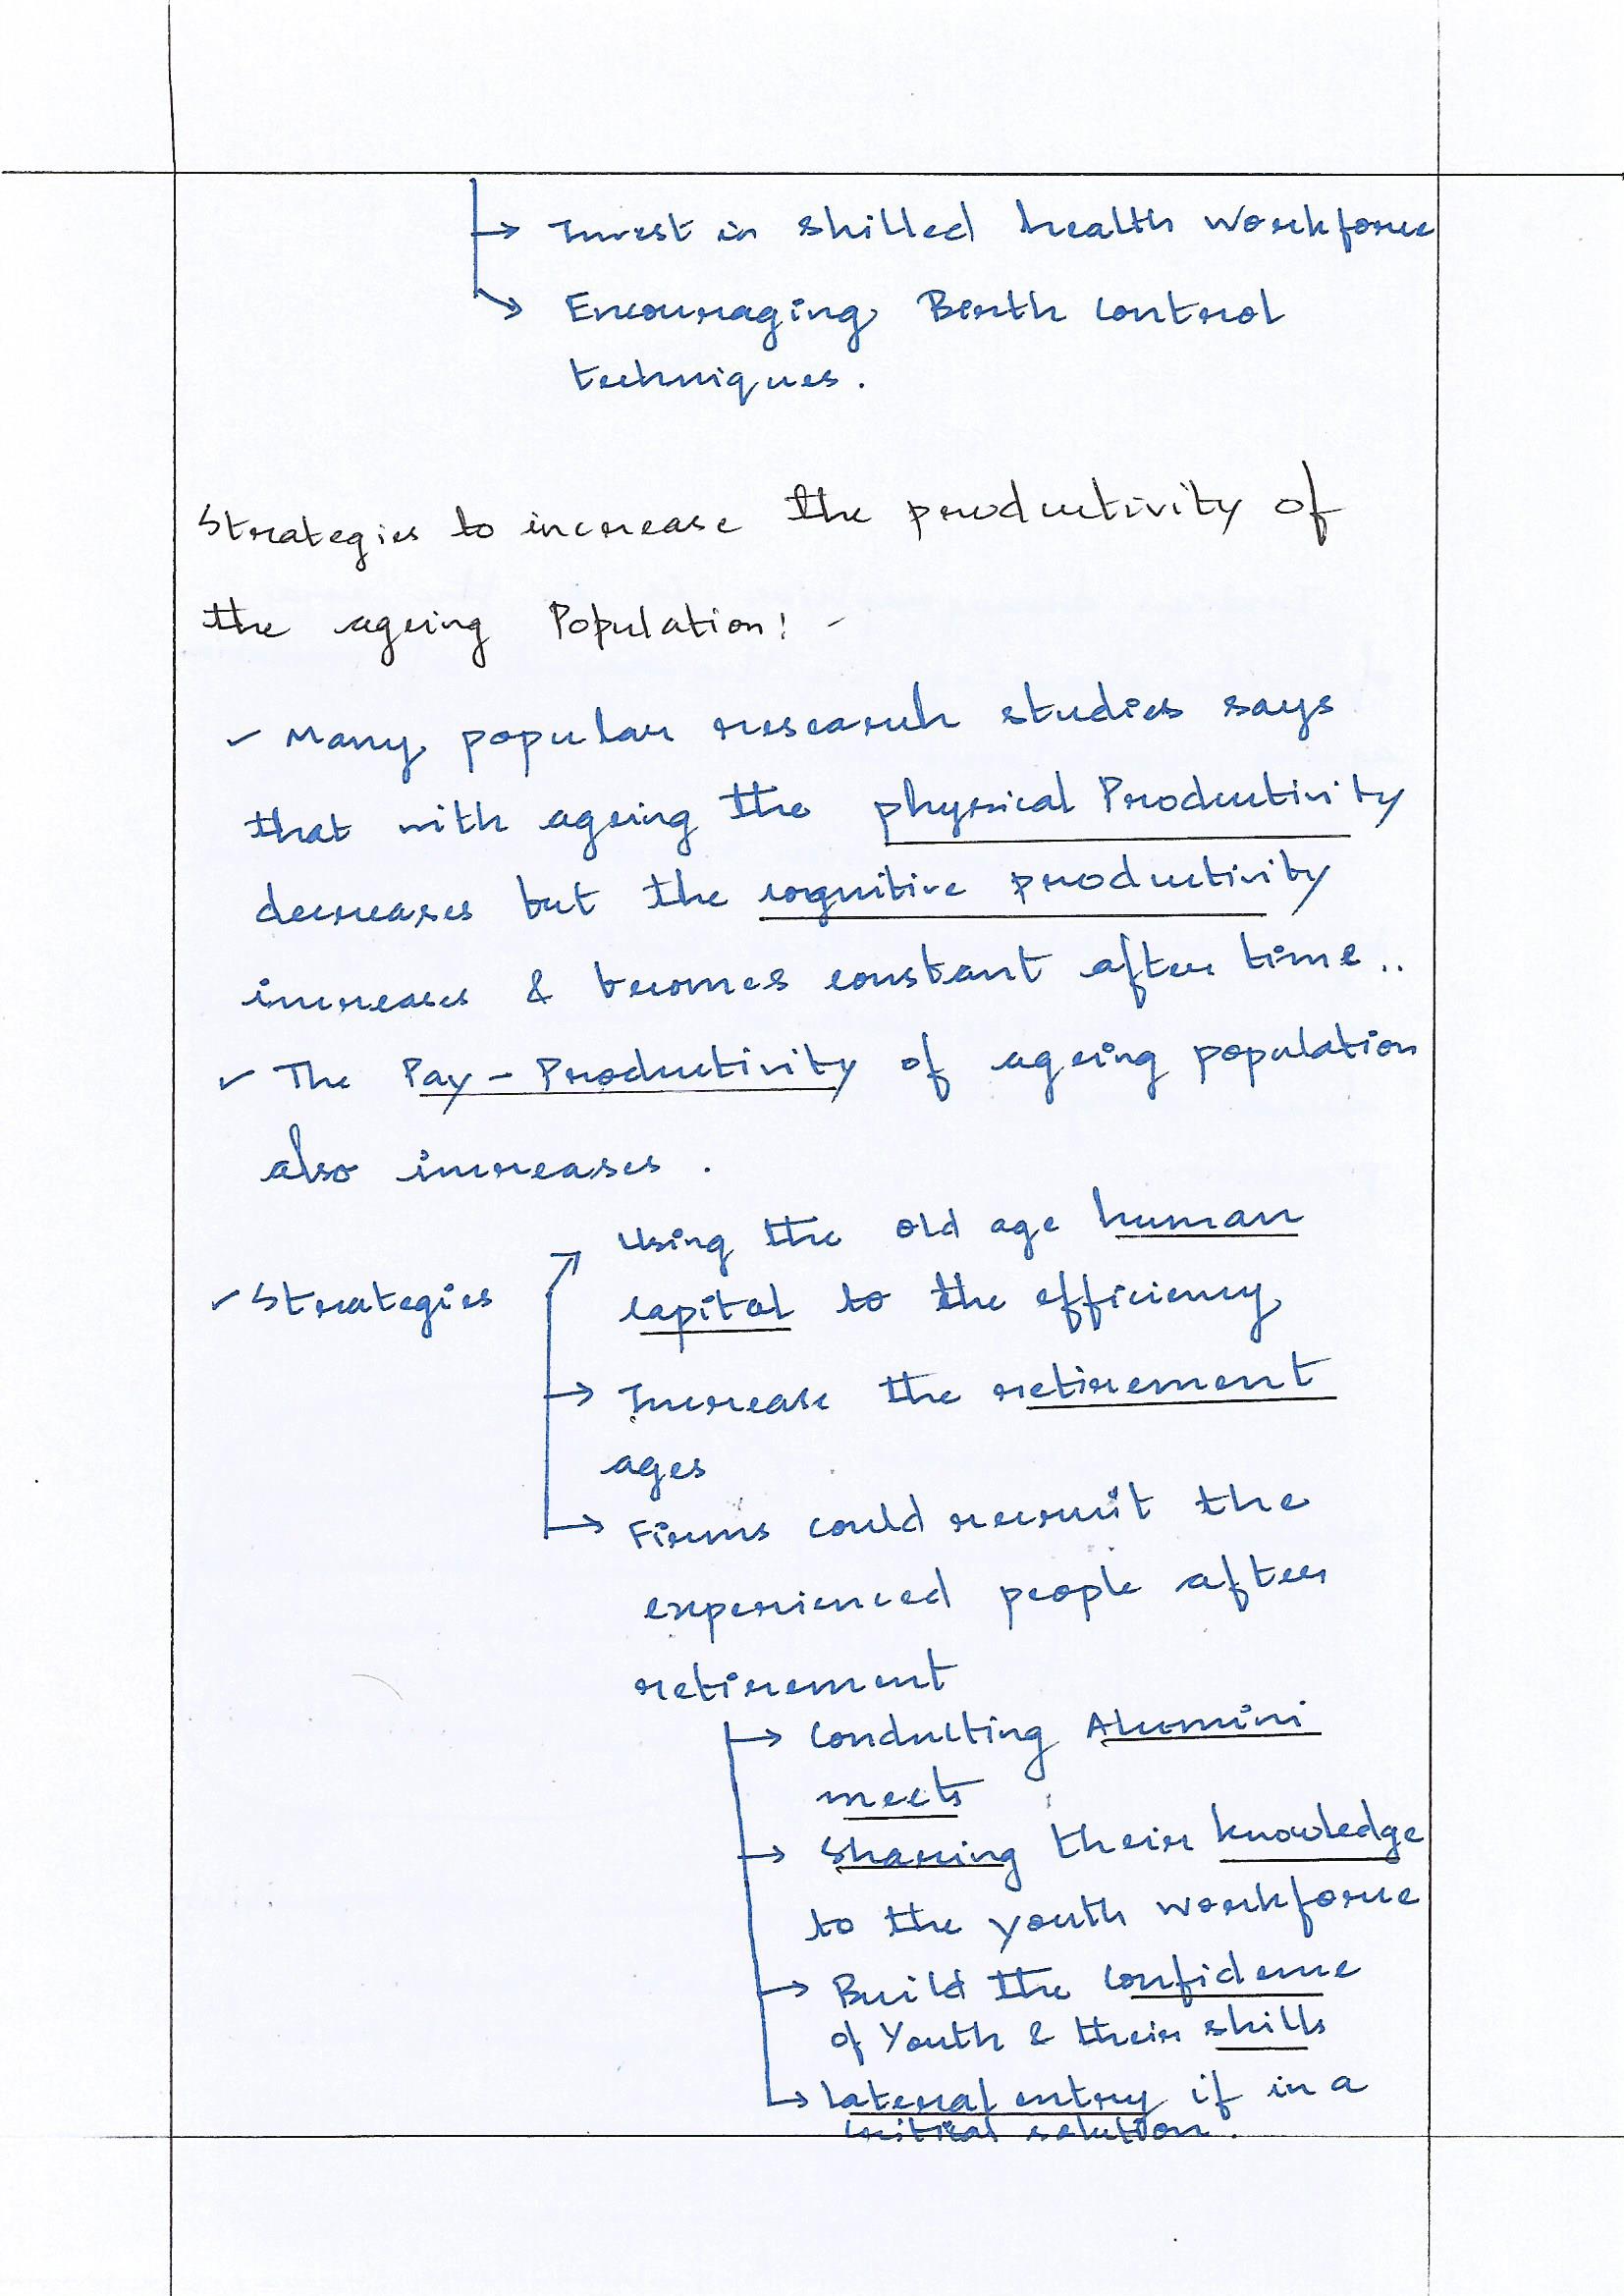 → Invest in skilled health workforce
→ Encouraging Birth control
techniques.
Strategies to increase the productivity of
the ageing Population: -
✓ Many popular research studies says
that with ageing the physical Productivity
decreases but the cognitive productivity
increases & becomes constant after time..
✓ The Pay - Productivity of ageing population
also increases.
→ Using the old age human
✓ Strategies
capital to the efficiency
→ Increase the retirement
ages
→ Firms could recruit the
experienced people after
retirement
→ Conducting Alumini
meets
→ Sharing their knowledge
to the youth workforce
→ Build the confidence
of Youth & their skills
→ lateral entry if in a
critical solution.